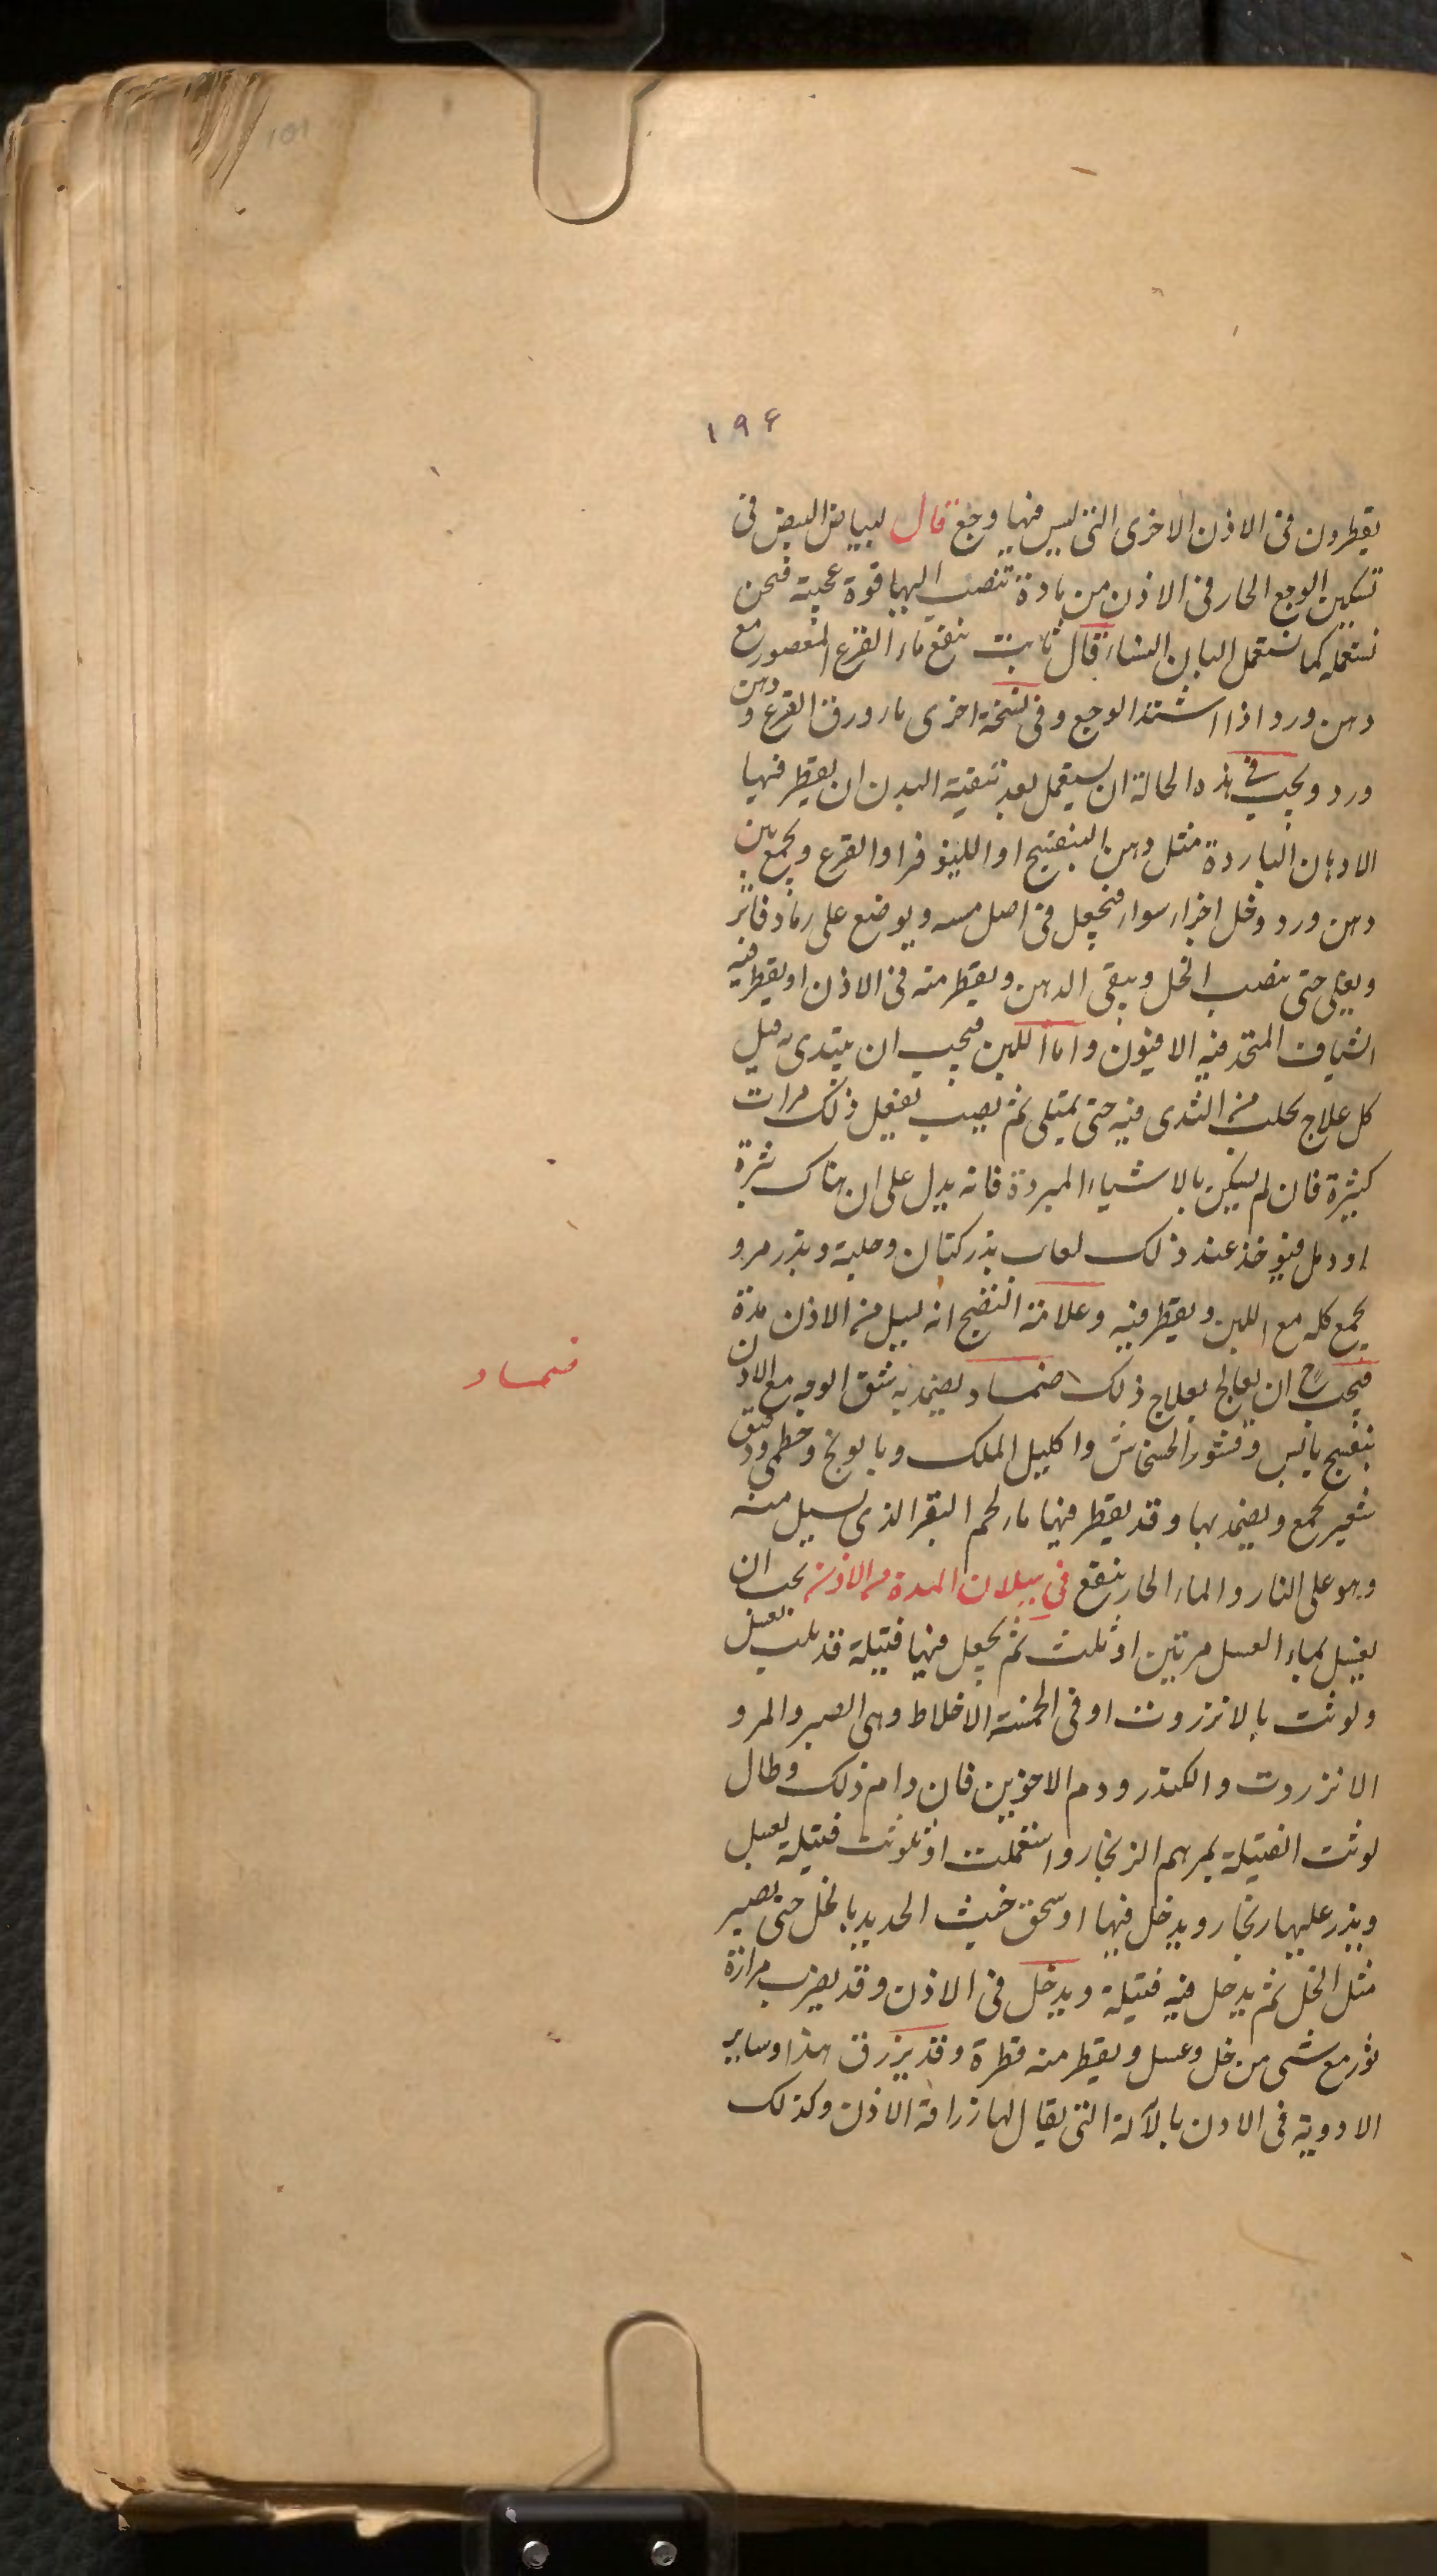 ۱۹۶
يقطرون فى الاذن الاخرى التى ليس فيها وجع قال لبياض البيض فى
تسكين الوجع الحار فى الاذن من مادة تنصب اليها قوة عجيبة فنحن
نستعمله كما نستعمل البان النساء قال ثابت ينفع ماء القرع المعصور مع
دهن ورد اذا اشتد الوجع وفى نسخة اخرى ماء ورق القرع و دهن
ورد ويجب فى هذه الحالة ان يستعمل بعد تنقية البدن ان يقطر فيها
الادهان الباردة مثل دهن البنفسج او اللينوفر او القرع ويجمع بين
دهن ورد وخل اجزاء سواء فيجعل فى اصل مسه ويوضع على رماد فاتر
ويغلى حتى ينصب الخل ويبقى الدهن ويقطر منه فى الاذن او يقطر فيه
الشياف المتخذ فيه الافيون واما اللبن فيجب ان يبتدى به قبل
كل علاج يحلب من الثدى فيه حتى يمتلى ثم يصب يفعل ذلك مرات
كثيرة فان لم يسكن بالاشياء المبردة فانه يدل على ان هناك بثرة
او دمل فيؤخذ عند ذلك لعاب بذر كتان وحلبة وبذر مرو
يجمع كله مع اللبن ويقطر فيه وعلامة النضج انه يسيل من الاذن مدة
فيجب ح ان يعالج بعلاج ذلك ضماد يضمد به شق الوجه مع الاذن
ضماد
بنفسج يابس وقشور الخشخاش واكليل الملك وبابونج وخطمى ودقيق
شعير يجمع ويضمد بها وقد يقطر فيها ماء لحم البقر الذى يسيل منه
وهو على النار والماء الحار ينفع فى سيلان المدة من الاذن يجب ان
يغسل بماء العسل مرتين او ثلث ثم يجعل فيها فتيلة قد بلت بعسل
ولوثت بالانزروت او فى الخمسة الاخلاط وهى الصبر والمر و
الانزروت والكندر ودم الاخوين فان دام ذلك وطال
لوثت الفتيلة بمرهم الزنجار واستعملت او تلوث فتيلة بعسل
ويذر عليها زنجار ويدخل فيها او سحق خبث الحديد بالخل حتى يصير
مثل الخل ثم يدخل فيه فتيلة ويدخل فى الاذن وقد يضرب مرارة
ثور مع شى من خل وعسل ويقطر منه قطرة وقد يزرق هذا وساير
الادوية فى الاذن بالآلة التى يقال لها زراقة الاذن وكذلك